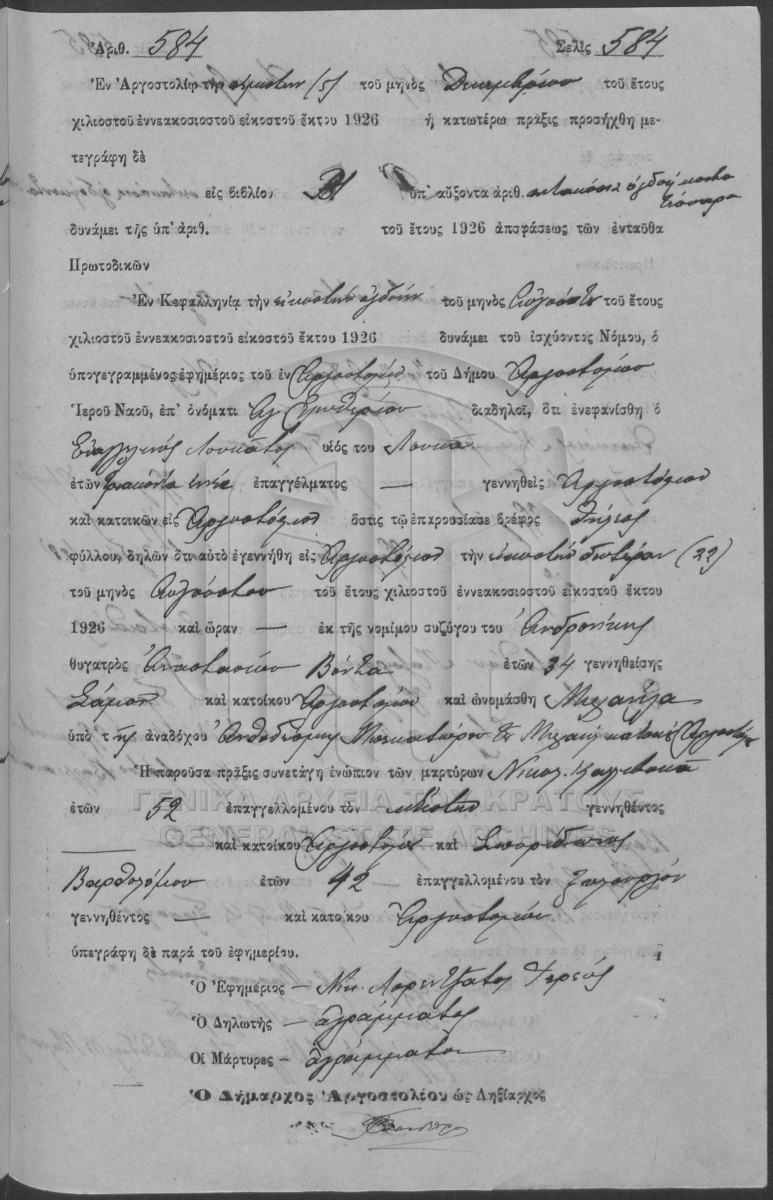 Ἀριθ. 584 Σελὶς 584
Ἐν Ἀργοστολίῳ τὴν πέμπτην (5) τοῦ μηνὸς Δεκεμβρίου τοῦ ἔτους
χιλιοστοῦ ἐννεακοσιοστοῦ εἰκοστοῦ ἕκτου 1926 ἡ κατωτέρω πρᾶξις προσήχθη με-
τεγράφη δὲ
εἰς βιβλίον Β ὑπ' αὔξοντα ἀριθ. πεντακόσια ὀγδοήκοντα
τέσσαρα
δυνάμει τῆς ὑπ' ἀριθ. τοῦ ἔτους 1926 ἀποφάσεως τῶν ἐνταῦθα
Πρωτοδικῶν
Ἐν Κεφαλληνίᾳ τὴν εἰκοστὴν ὀγδόην τοῦ μηνὸς Αὐγούστου τοῦ ἔτους
χιλιοστοῦ ἐννεακοσιοστοῦ εἰκοστοῦ ἕκτου 1926 δυνάμει τοῦ ἰσχύοντος Νόμου, ὁ
ὑπογεγραμμένος ἐφημέριος τοῦ ἐν Ἀργοστολίῳ τοῦ Δήμου Ἀργοστολίου
Ἱεροῦ Ναοῦ, ἐπ' ὀνόματι Ἁγ διαδηλοῖ, ὅτι ἐνεφανίσθη ὁ
Εὐαγγελινὸς Λουκᾶτος υἱός του Λουκᾶ
ἐτῶν τριάκοντα ἐννέα ἐπαγγέλματος — γεννηθεὶς Ἀργοστόλιον
καὶ κατοικῶν εἰς Ἀργοστόλιον ὅστις τῷ ἐπαρουσίασε βρέφος θήλεος
φύλλου, δηλῶν ὅτι αὐτὸ ἐγεννήθη εἰς Ἀργοστόλιον τὴν εἰκοστὴν δευτέραν (22)
τοῦ μηνὸς Αὐγούστου τοῦ ἔτους χιλιοστοῦ ἐννεακοσιοστοῦ εἰκοστοῦ ἕκτου
1926 καὶ ὥραν — ἐκ τῆς νομίμου συζύγου του Ἀνδρονίκης
θυγατρὸς Ἀναστασίου Βόντα ἐτῶν 34 γεννηθείσης
Σάμον καὶ κατοίκου Ἀργοστολίου καὶ ὠνομάσθη Μιχαήλα
ὑπὸ τῆς ἀναδόχου Ἀνθοδέσμης
Ἡ παροῦσα πρᾶξις συνετάγη ἐνώπιον τῶν μαρτύρων Νικολ.
ἐτῶν 52 ἐπαγγελλομένου τὸν γεννηθέντος
— καὶ κατοίκου Ἀργοστολίου καὶ Σπυρίδωνος
Βαρθολόμου ἐτῶν 42 ἐπαγγελλομένου τὸν ξυλουργὸν
γεννηθέντος — καὶ κατοίκου Ἀργοστολίου
ὑπεγράφη δὲ παρὰ τοῦ ἐφημερίου.
Ὁ Ἐφημέριος — Νικ. Λορεντζᾶτος Ἱερεύς
Ὁ Δηλωτὴς — ἀγράμματος
Οἱ Μάρτυρες — ἀγράμματοι
Ὁ Δήμαρχος Ἀργοστολίου ὡς Ληξίαρχος
ΓΕΝΙΚΑ ΑΡΧΕΙΑ ΤΟΥ ΚΡΑΤΟΥΣ
GENERAL STATE ARCHIVES